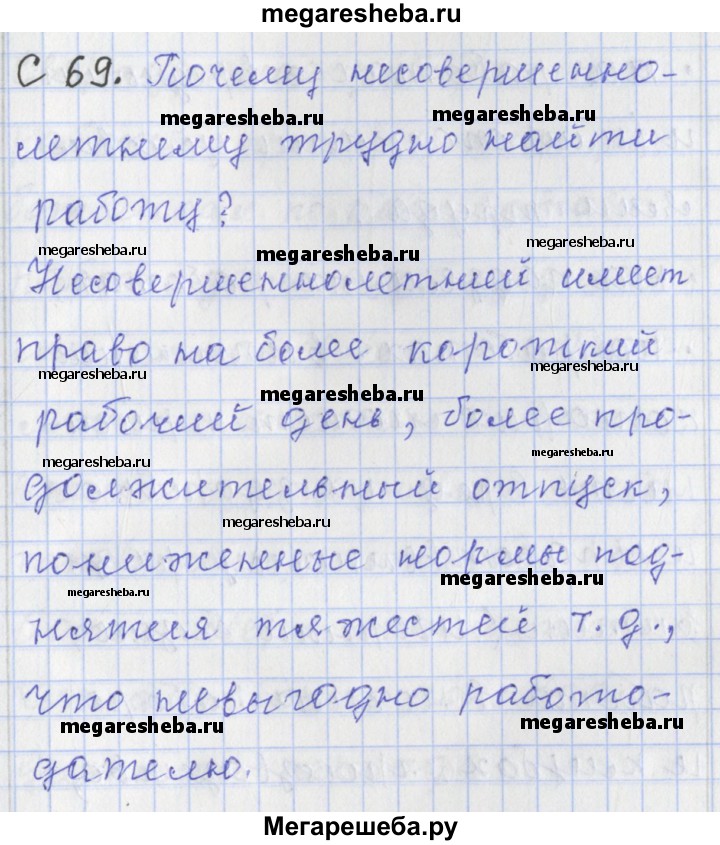 megaresheba.ru
С 69. Почему несовершенно-
megaresheba.ru megaresheba.ru
летнему трудно найти
работу?
megaresheba.ru megaresheba.ru megaresheba.ru
Несовершеннолетний имеет
право на более короткий
megaresheba.ru megaresheba.ru megaresheba.ru
рабочий день, более про-
megaresheba.ru megaresheba.ru
должительный отпуск,
megaresheba.ru
пониженные нормы под-
megaresheba.ru megaresheba.ru
нятия тяжестей т. д.,
что невыгодно работо-
megaresheba.ru megaresheba.ru
дателю.
Мегарешеба.ру